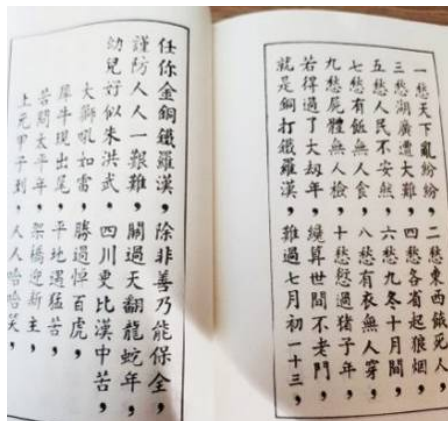 一愁天下亂紛紛，二愁東西餓死人，
三愁湖廣遭大難，四愁各省起狼烟，
五愁人民不安然，六愁九冬十月間，
七愁有飯無人食，八愁有衣無人穿，
九愁屍體無人檢，十愁愆過猪子年，
若得過了大劫年，纔算世間不老門，
就是銅打鐵羅漢，難過七月初一十三，
任你金銅鐵羅漢，除非善乃能保全，
謹防人人一艱難，關過天翻龍蛇年，
幼兒好似朱洪武，四川更比漢中苦，
大獅吼如雷，勝過悼百虎，
犀牛現出尾，平地遇猛苦，
若問太平年，架橋迎新主，
上元甲子到，人人哈哈笑，